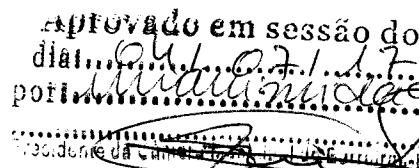 Aprovado em sessão do
dia 04/07/17
por unanimidade
Presidente da Câmara